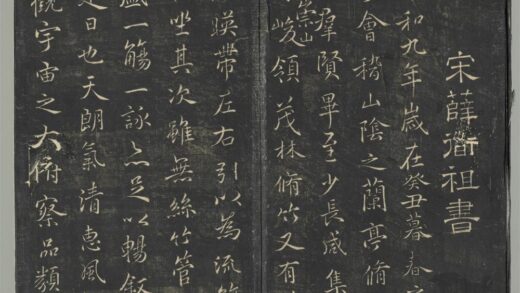 宋薛衜祖書
和九年歲在癸丑暮春
會稽山陰之蘭亭脩
羣賢畢至少長咸集
崇山
峻領茂林脩竹又有
暎帶左右引以為流
坐其次雖無絲竹管
盛一觴一詠亦足以暢敘
是日也天朗氣清惠風
觀宇宙之大俯察品類